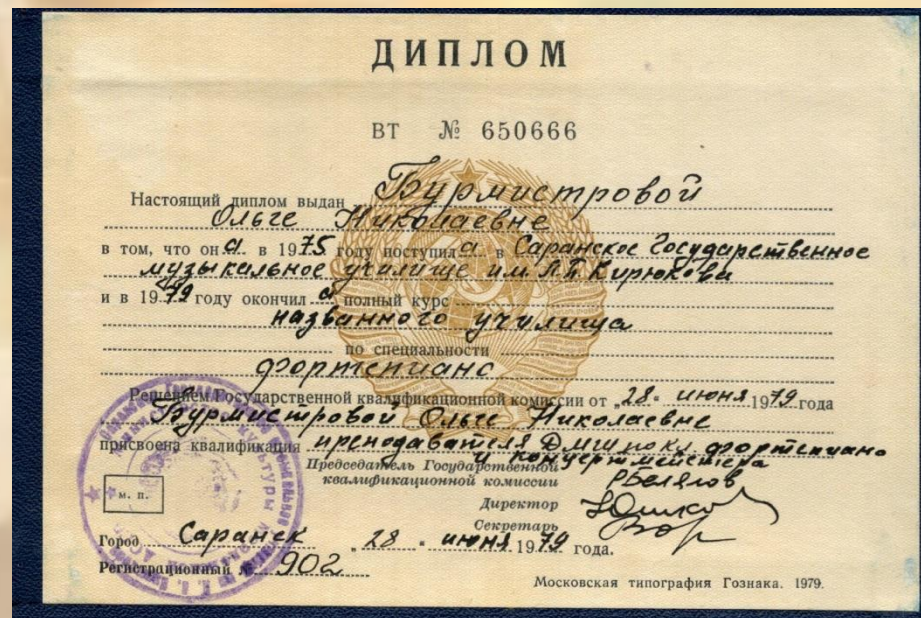 ДИПЛОМ
ВТ № 650666
Настоящий диплом выдан Бурмистровой
Ольге Николаевне
в том, что она в 1975 году поступила в Саранское Государственное
музыкальное училище им. Л.П. Кирюкова
и в 1979 году окончила полный курс
названного училища
по специальности
фортепиано
Решением Государственной квалификационной комиссии от „28“ июня 1979 года
Бурмистровой Ольге Николаевне
присвоена квалификация преподавателя ДМШ по кл. фортепиано
и концертмейстера
Председатель Государственной
квалификационной комиссии
Директор
Секретарь
М. П.
Город Саранск „28“ июня 1979 года.
Регистрационный № 902
Московская типография Гознака. 1979.